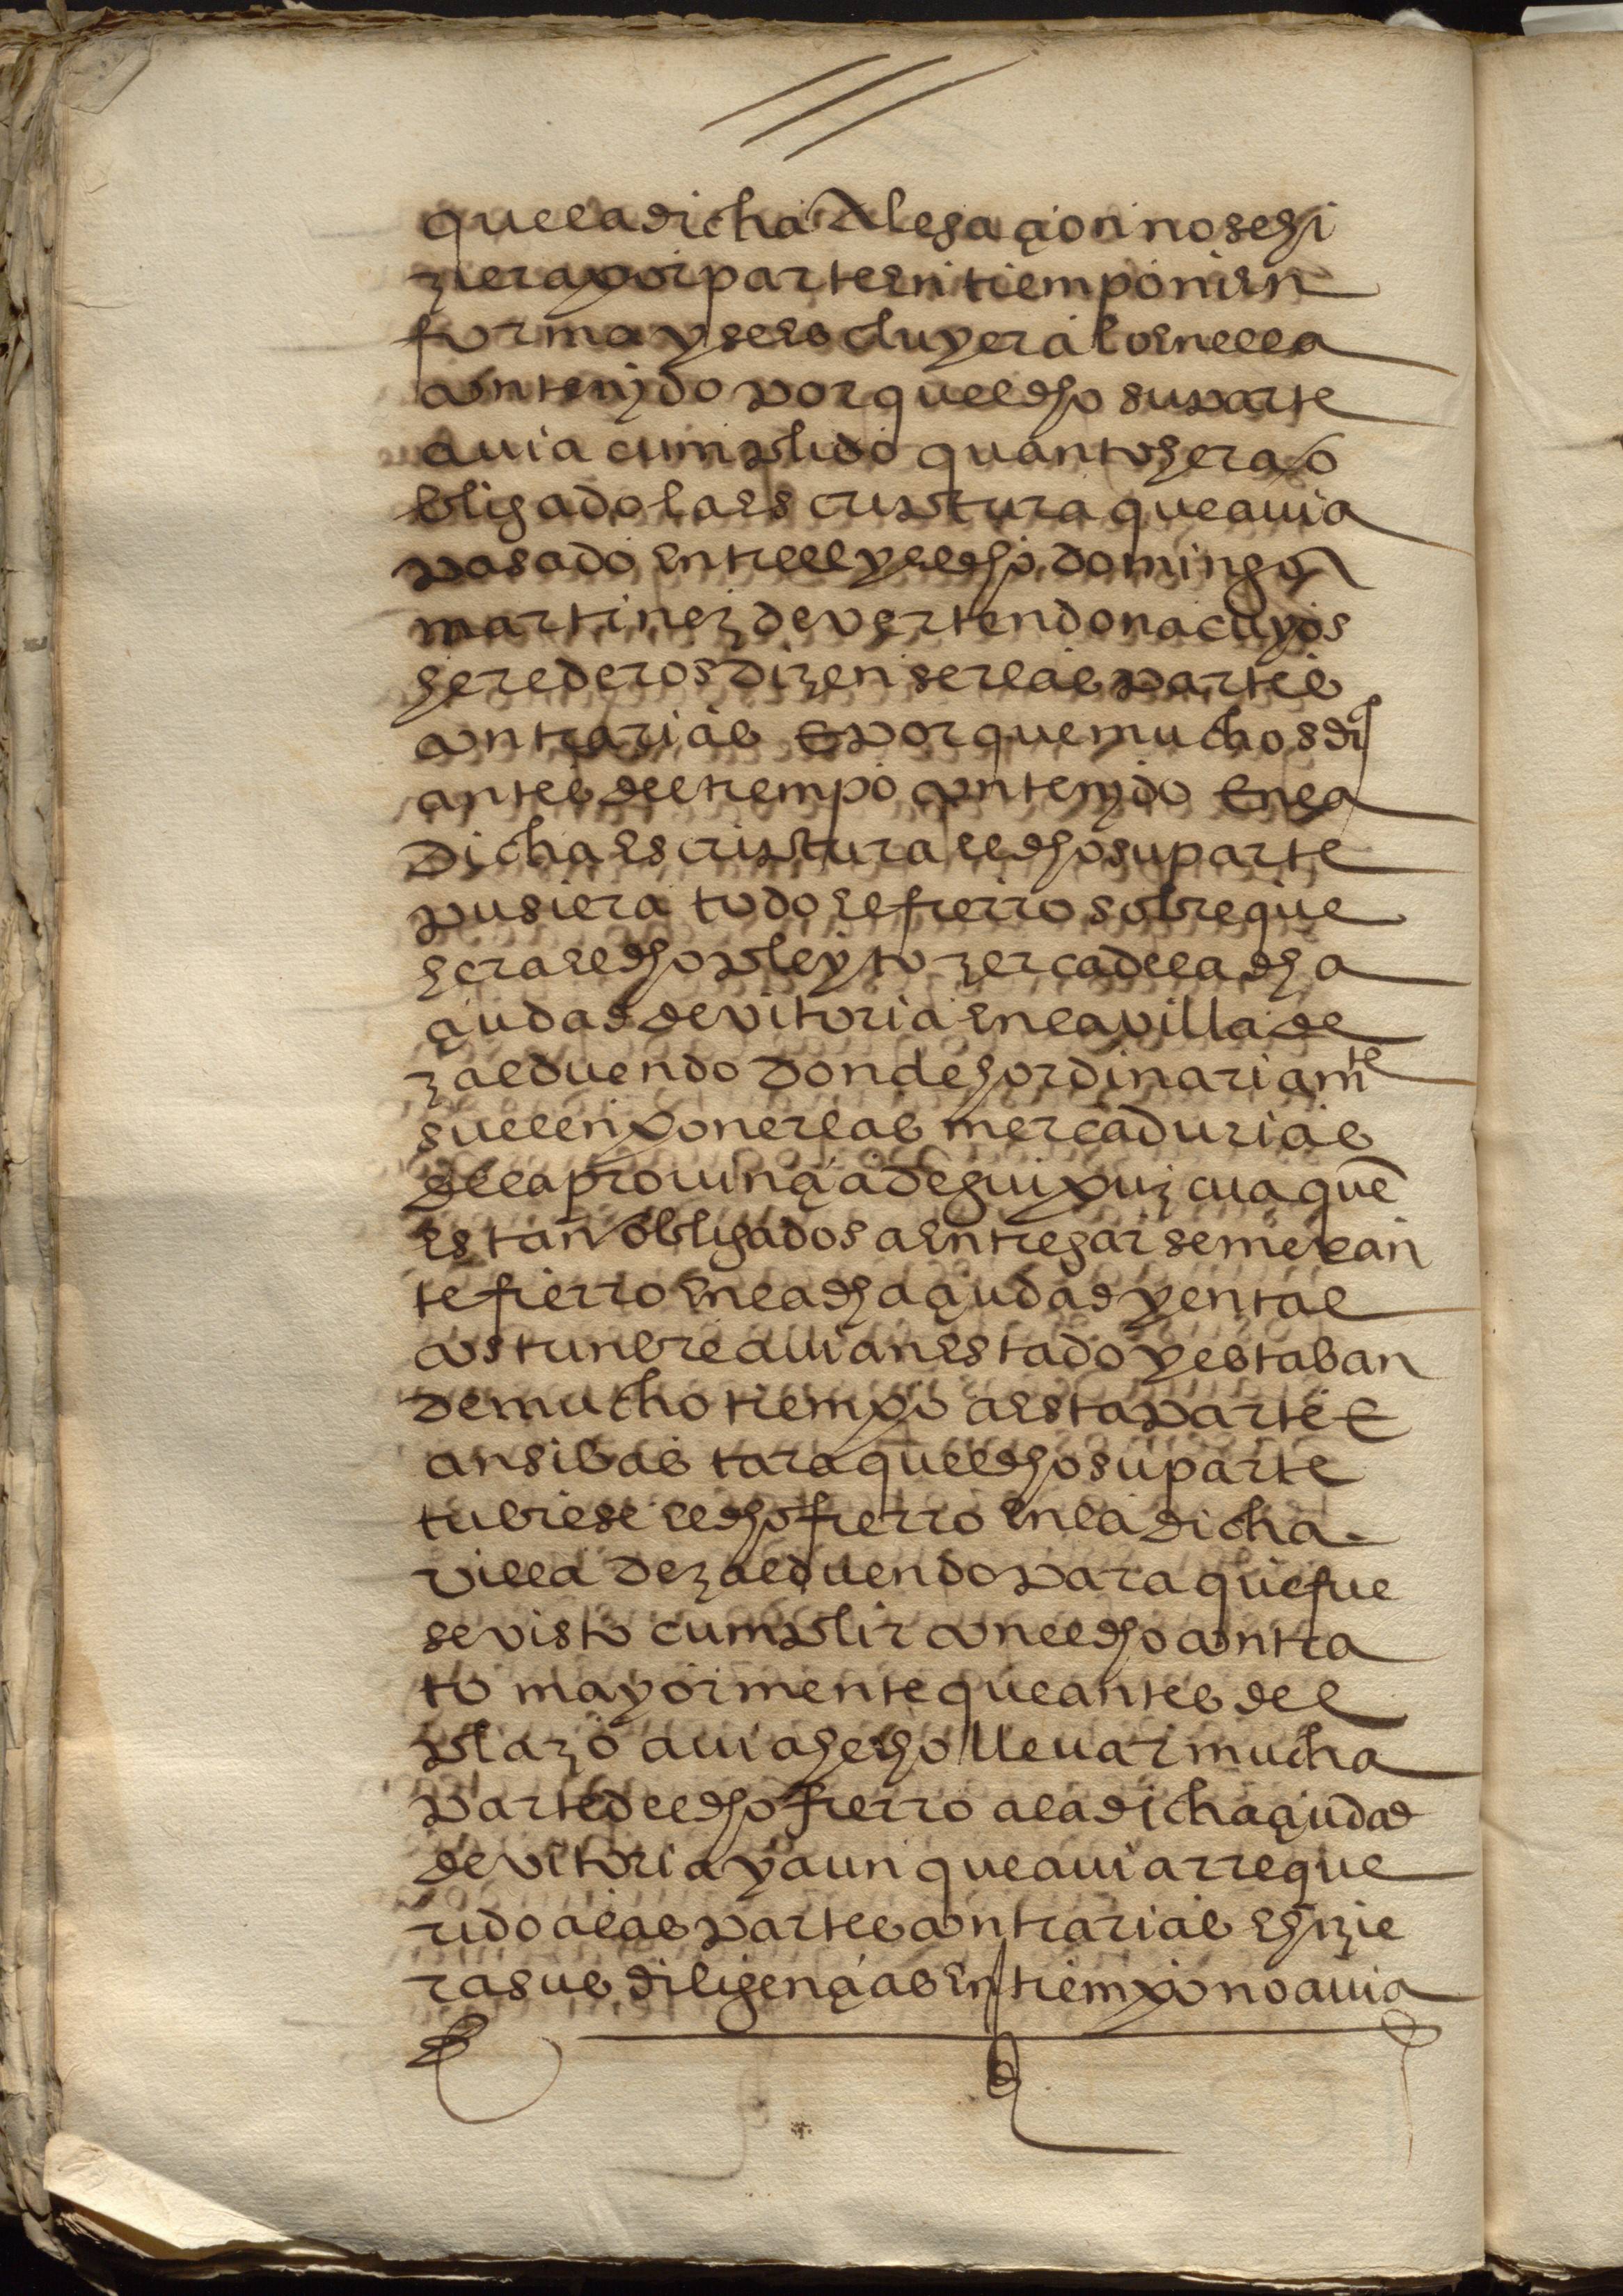 que la dicha Alegaçion no se hi
ziera por parte en tiempo ni en
forma y se escluyera lo en ella
contenydo por que el dho su parte
auia cumplido quanto hera o
bligado la escriptura que auia
pasado entre el y el dho domingo
martinez de vertendona cuyos
herederos dizen ser las partes
contrarias E por que muchos di
antes del tiempo contenydo En la
dicha escriptura el dho su parte
pusiera todo el fierro sobre que
hera el dho pleyto zerca de la dha
çiudad de vitoria en la villa de
zalduendo donde hordinariamte
suelen poner las mercadurias
de la prouinçia de guipuzcua que
estan obligados a entregar semexan
te fierro en la dha çiudad y en tal
costunbre auian estado y estaban
de mucho tiempo a esta parte E
ansi bastara que el dho su parte
tubiese el dho fierro en la dicha
villa de zalduendo para que fue
se visto cumplir con el dho contra
to mayormente que antes del
plazo auia hecho lleuar mucha
parte del dho fierro a la dicha çiudad
de vitoria y aun que auia rreque
rido a las partes contrarias e hizie
ra sus diligençias en tiempo no auia